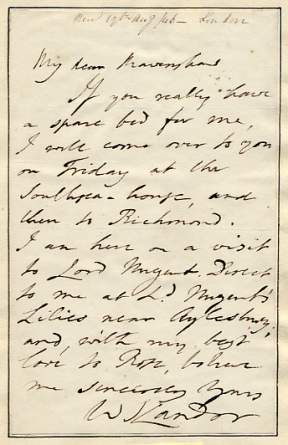 London
My dear Ravenshaw
If you really have
a spare bed for me,
I will come over to you
on Friday at the
Southsea-house, and
then to Richmond.
I am here on a visit
to Lord Nugent. Direct
to me at Ld. Nugent's
Lilies near Aylesbury,
and, with my best
love to Rose, believe
me sincerely yours
W S Landor